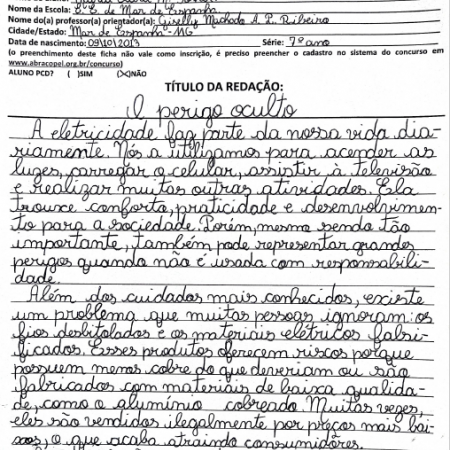 Nome da Escola: E.E de Mar de Espanha
Nome do(a) professor(a) orientador(a): Giselly Machado A. P. Ribeiro
Cidade/Estado: Mar de Espanha - MG
Data de nascimento: 09/10/2013 Série: 7º ano
(o preenchimento desta ficha não vale como inscrição, é preciso preencher o cadastro no sistema do concurso em
www.abracopel.org.br/concurso)
ALUNO PCD? ( )SIM (X)NÃO
TÍTULO DA REDAÇÃO:
O perigo oculto
A eletricidade faz parte da nossa vida dia-
riamente. Nós a utilizamos para acender as
luzes, carregar o celular, assistir à televisão
e realizar muitas outras atividades. Ela
trouxe conforto, praticidade e desenvolvimen-
to para a sociedade. Porém, mesmo sendo tão
importante, também pode representar grandes
perigos quando não é usada com responsabili-
dade.
Além dos cuidados mais conhecidos, existe
um problema que muitas pessoas ignoram: os
fios desbitolados e os materiais elétricos falsi-
ficados. Esses produtos oferecem riscos porque
possuem menos cobre do que deveriam ou são
fabricados com materiais de baixa qualida-
de, como o alumínio cobreado. Muitas vezes,
eles são vendidos ilegalmente por preços mais bai-
xos, o que acaba atraindo consumidores.